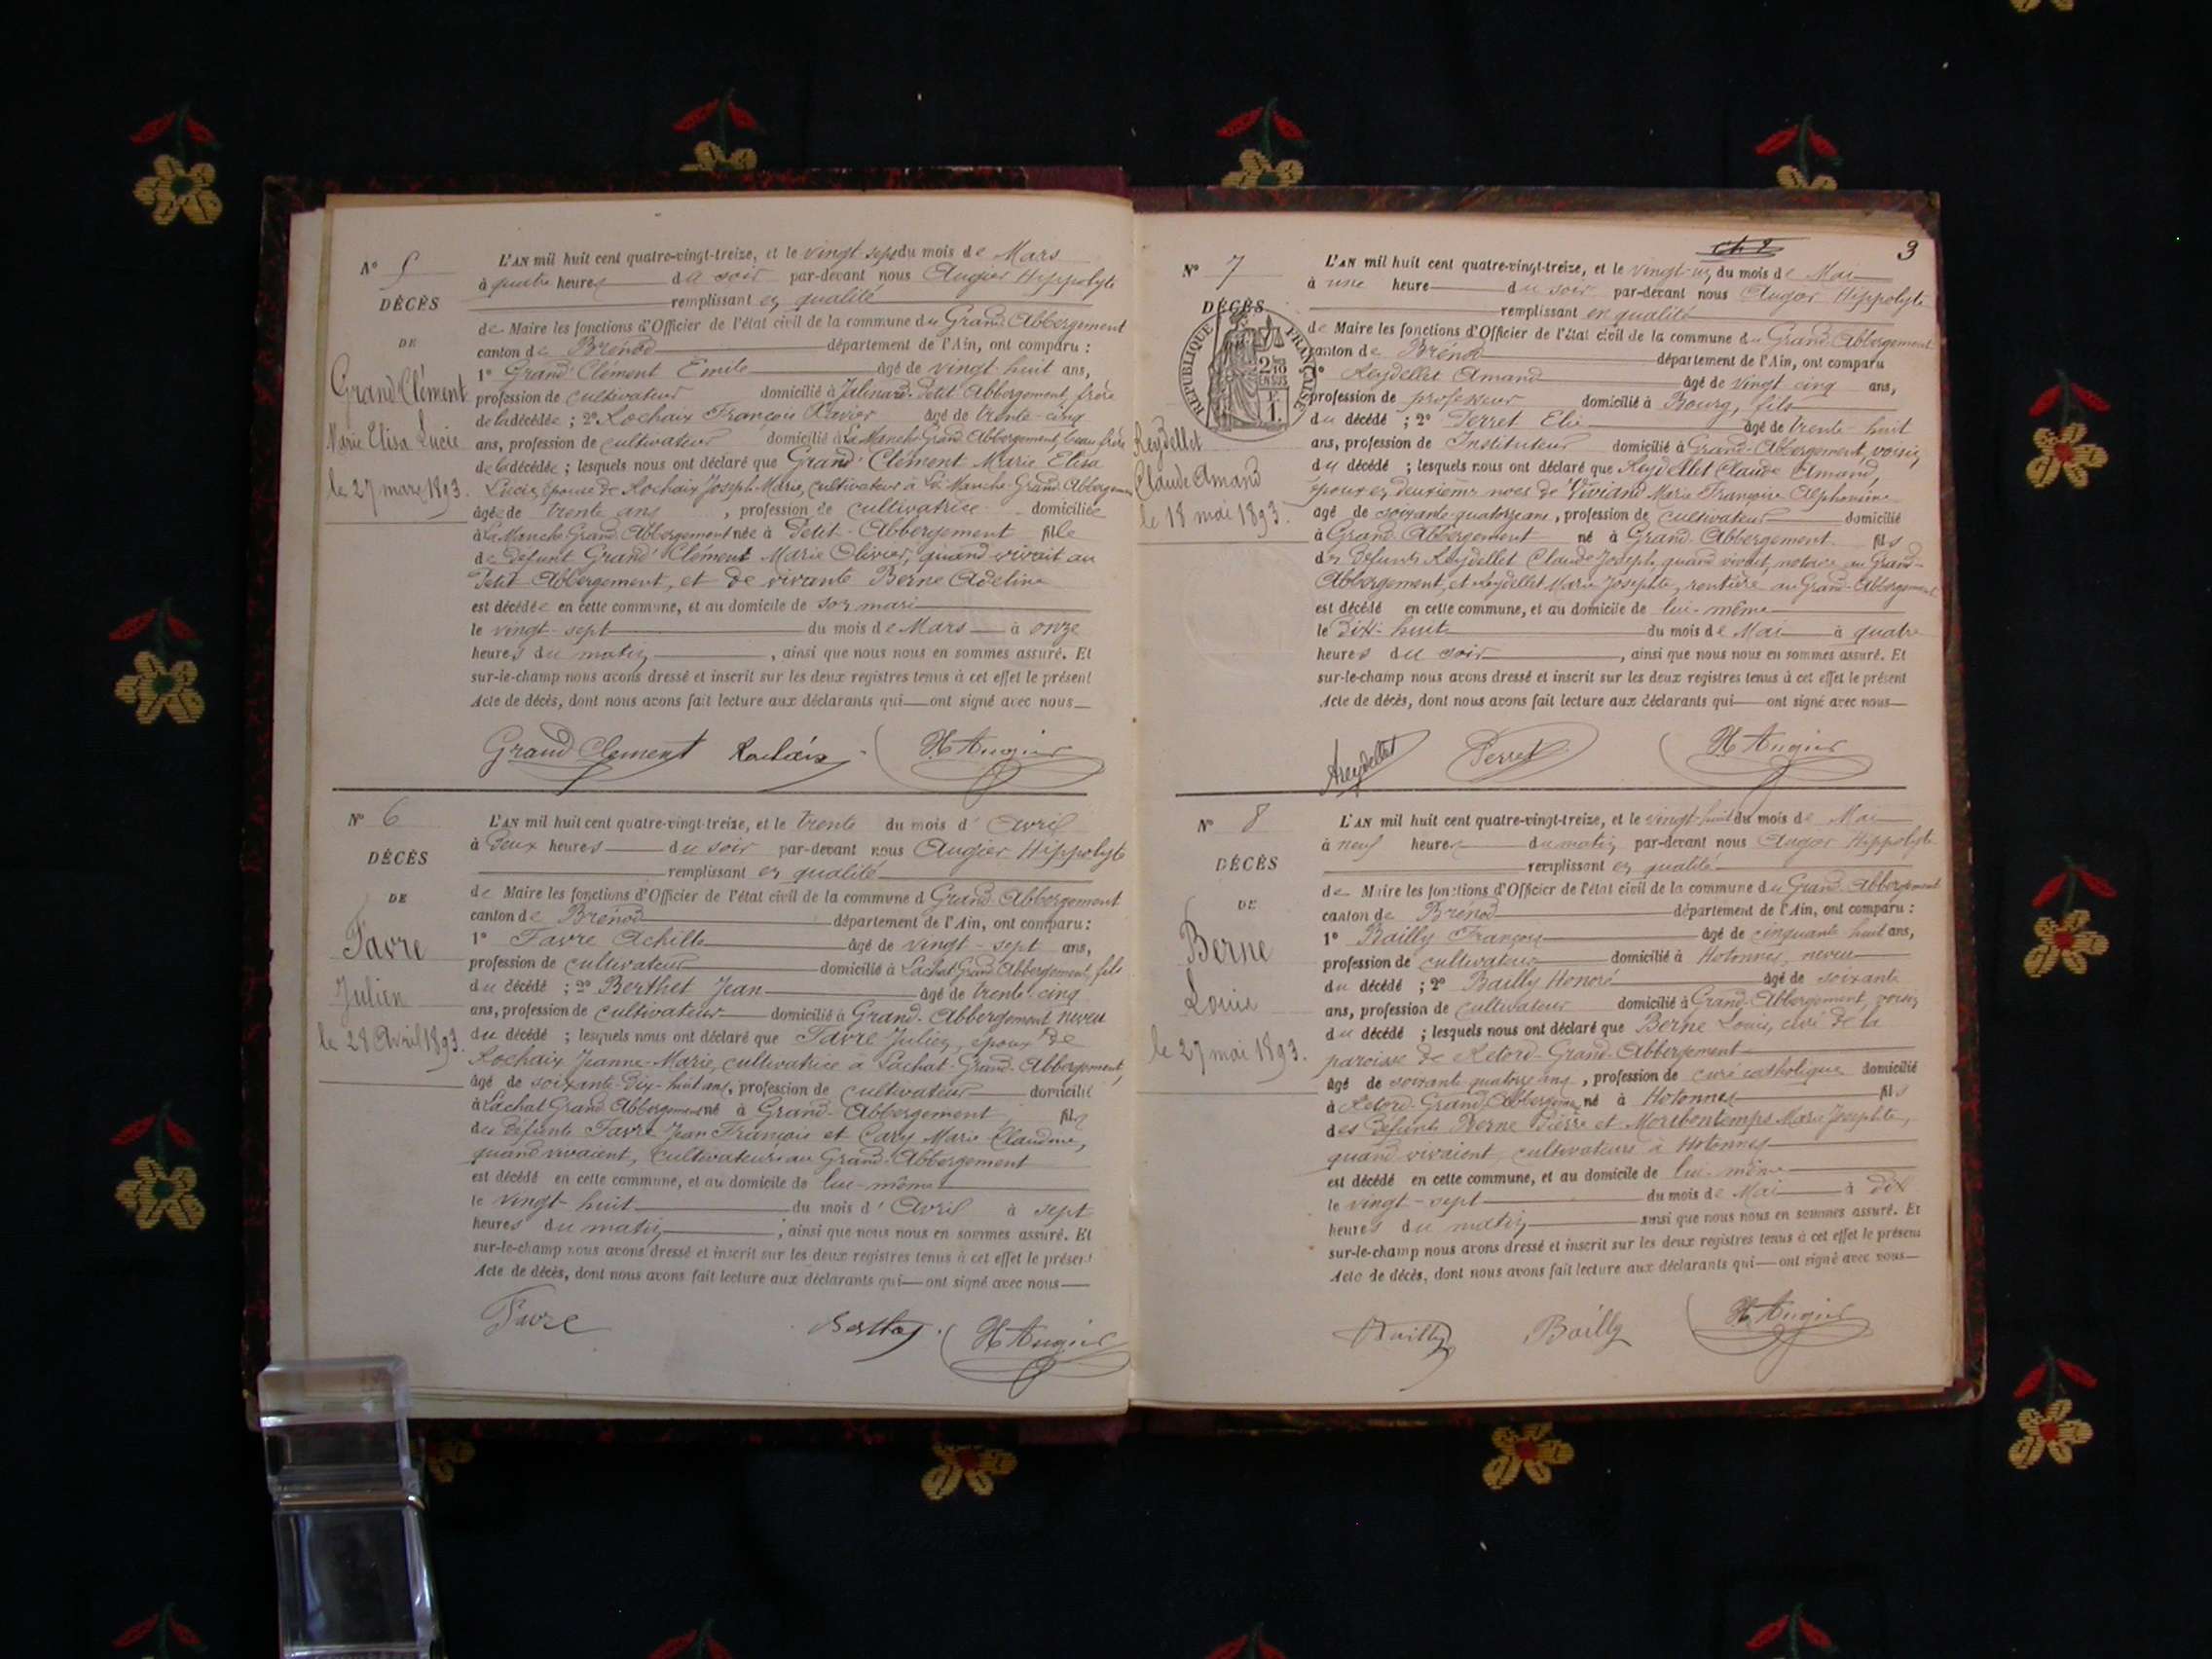 N° 5
DÉCÈS
DE
Grand Clément
Marie Elisa Lucie
le 27 mars 1893.
L'AN mil huit cent quatre-vingt-treize, et le vingt-sept du mois de Mars
à quatre heures du soir par-devant nous Augier Hippolyte
remplissant en qualité
de Maire les fonctions d'Officier de l'état civil de la commune du Grand-Abbergement
canton de Brénod département de l'Ain, ont comparu :
1° Grand Clément Emile âgé de vingt-huit ans,
profession de cultivateur domicilié à Jalinard-Petit-Abbergement, frère
de la décédée ; 2° Rochaix François Xavier âgé de trente-cinq
ans, profession de cultivateur domicilié à La Manche Grand Abbergement, beau-frère
de la décédée ; lesquels nous ont déclaré que Grand Clément Marie Elisa
Lucie, épouse de Rochaix Joseph-Marie, cultivateur à La Manche-Grand-Abbergement
âgée de trente ans, profession de cultivatrice domiciliée
à La Manche Grand Abbergement née à Petit-Abbergement fille
de défunt Grand Clément Marie Olivier, quand vivait au
Petit-Abbergement, et de vivante Berne Adeline
est décédée en cette commune, et au domicile de son mari
le vingt-sept du mois de Mars à onze
heures du matin, ainsi que nous nous en sommes assuré. Et
sur-le-champ nous avons dressé et inscrit sur les deux registres tenus à cet effet le présent
Acte de décès, dont nous avons fait lecture aux déclarants qui ont signé avec nous
Grand Clement Rochaix H. Augier
N° 6
DÉCÈS
DE
Favre
Julien
le 28 Avril 1893.
L'AN mil huit cent quatre-vingt-treize, et le trente du mois d'Avril
à deux heures du soir par-devant nous Augier Hippolyte
remplissant en qualité
de Maire les fonctions d'Officier de l'état civil de la commune d Grand-Abbergement
canton de Brénod département de l'Ain, ont comparu :
1° Favre Achille âgé de vingt-sept ans,
profession de cultivateur domicilié à Lachat Grand Abbergement, fils
du décédé ; 2° Berthet Jean âgé de trente-cinq
ans, profession de cultivateur domicilié à Grand-Abbergement neveu
du décédé ; lesquels nous ont déclaré que Favre Julien, époux de
Rochaix Jeanne-Marie, cultivatrice à Lachat-Grand-Abbergement,
âgé de soixante-dix-huit ans, profession de cultivateur domicilié
à Lachat Grand Abbergement né à Grand-Abbergement fils
des défunts Favre Jean François et Carry Marie Claudine,
quand vivaient, cultivateurs au Grand-Abbergement
est décédé en cette commune, et au domicile de lui-même
le vingt-huit du mois d'Avril à sept
heures du matin, ainsi que nous nous en sommes assuré. Et
sur-le-champ nous avons dressé et inscrit sur les deux registres tenus à cet effet le présent
Acte de décès, dont nous avons fait lecture aux déclarants qui ont signé avec nous
Favre Berthet H. Augier
3
N° 7
DÉCÈS
RÉPUBLIQUE FRANÇAISE
2/10 EN SUS
Reydellet
Claude Amand
le 18 mai 1893.
L'AN mil huit cent quatre-vingt-treize, et le vingt-un du mois de Mai
à une heure du soir par-devant nous Augier Hippolyte
remplissant en qualité
de Maire les fonctions d'Officier de l'état civil de la commune du Grand-Abbergement
canton de Brénod département de l'Ain, ont comparu
1° Reydellet Amand âgé de vingt-cinq ans,
profession de professeur domicilié à Bourg, fils
du décédé ; 2° Perret Elie âgé de trente-huit
ans, profession de Instituteur domicilié à Grand-Abbergement, voisin
du décédé ; lesquels nous ont déclaré que Reydellet Claude Amand,
époux en deuxième noces de Viviand Marie Françoise Alphonsine
âgé de soixante-quatorze ans, profession de cultivateur domicilié
à Grand-Abbergement né à Grand-Abbergement fils
des défunts Reydellet Claude Joseph, quand vivait, notaire au Grand-
Abbergement, et Reydellet Marie Josephte, rentière au Grand-Abbergement
est décédé en cette commune, et au domicile de lui-même
le dix-huit du mois de Mai à quatre
heures du soir, ainsi que nous nous en sommes assuré. Et
sur-le-champ nous avons dressé et inscrit sur les deux registres tenus à cet effet le présent
Acte de décès, dont nous avons fait lecture aux déclarants qui ont signé avec nous
AReydellet Perret H. Augier
N° 8
DÉCÈS
DE
Berne
Louis
le 27 mai 1893.
L'AN mil huit cent quatre-vingt-treize, et le vingt-huit du mois de Mai
à neuf heures du matin par-devant nous Augier Hippolyte
remplissant en qualité
de Maire les fonctions d'Officier de l'état civil de la commune du Grand-Abbergement
canton de Brénod département de l'Ain, ont comparu :
1° Bailly François âgé de cinquante huit ans,
profession de cultivateur domicilié à Hotonnes, neveu
du décédé ; 2° Bailly Honoré âgé de soixante
ans, profession de cultivateur domicilié à Grand-Abbergement, voisin
du décédé ; lesquels nous ont déclaré que Berne Louis, curé de la
paroisse de Retord-Grand-Abbergement
âgé de soixante quatorze ans, profession de curé catholique domicilié
à Retord-Grand-Abbergement né à Hotonnes fils
des défunts Berne Pierre et Morbontemps Marie Josephte,
quand vivaient cultivateurs à Hotonnes
est décédé en cette commune, et au domicile de lui-même
le vingt-sept du mois de Mai à dix
heures du matin ainsi que nous nous en sommes assuré. Et
sur-le-champ nous avons dressé et inscrit sur les deux registres tenus à cet effet le présent
Acte de décès, dont nous avons fait lecture aux déclarants qui ont signé avec nous
Bailly Bailly H. Augier